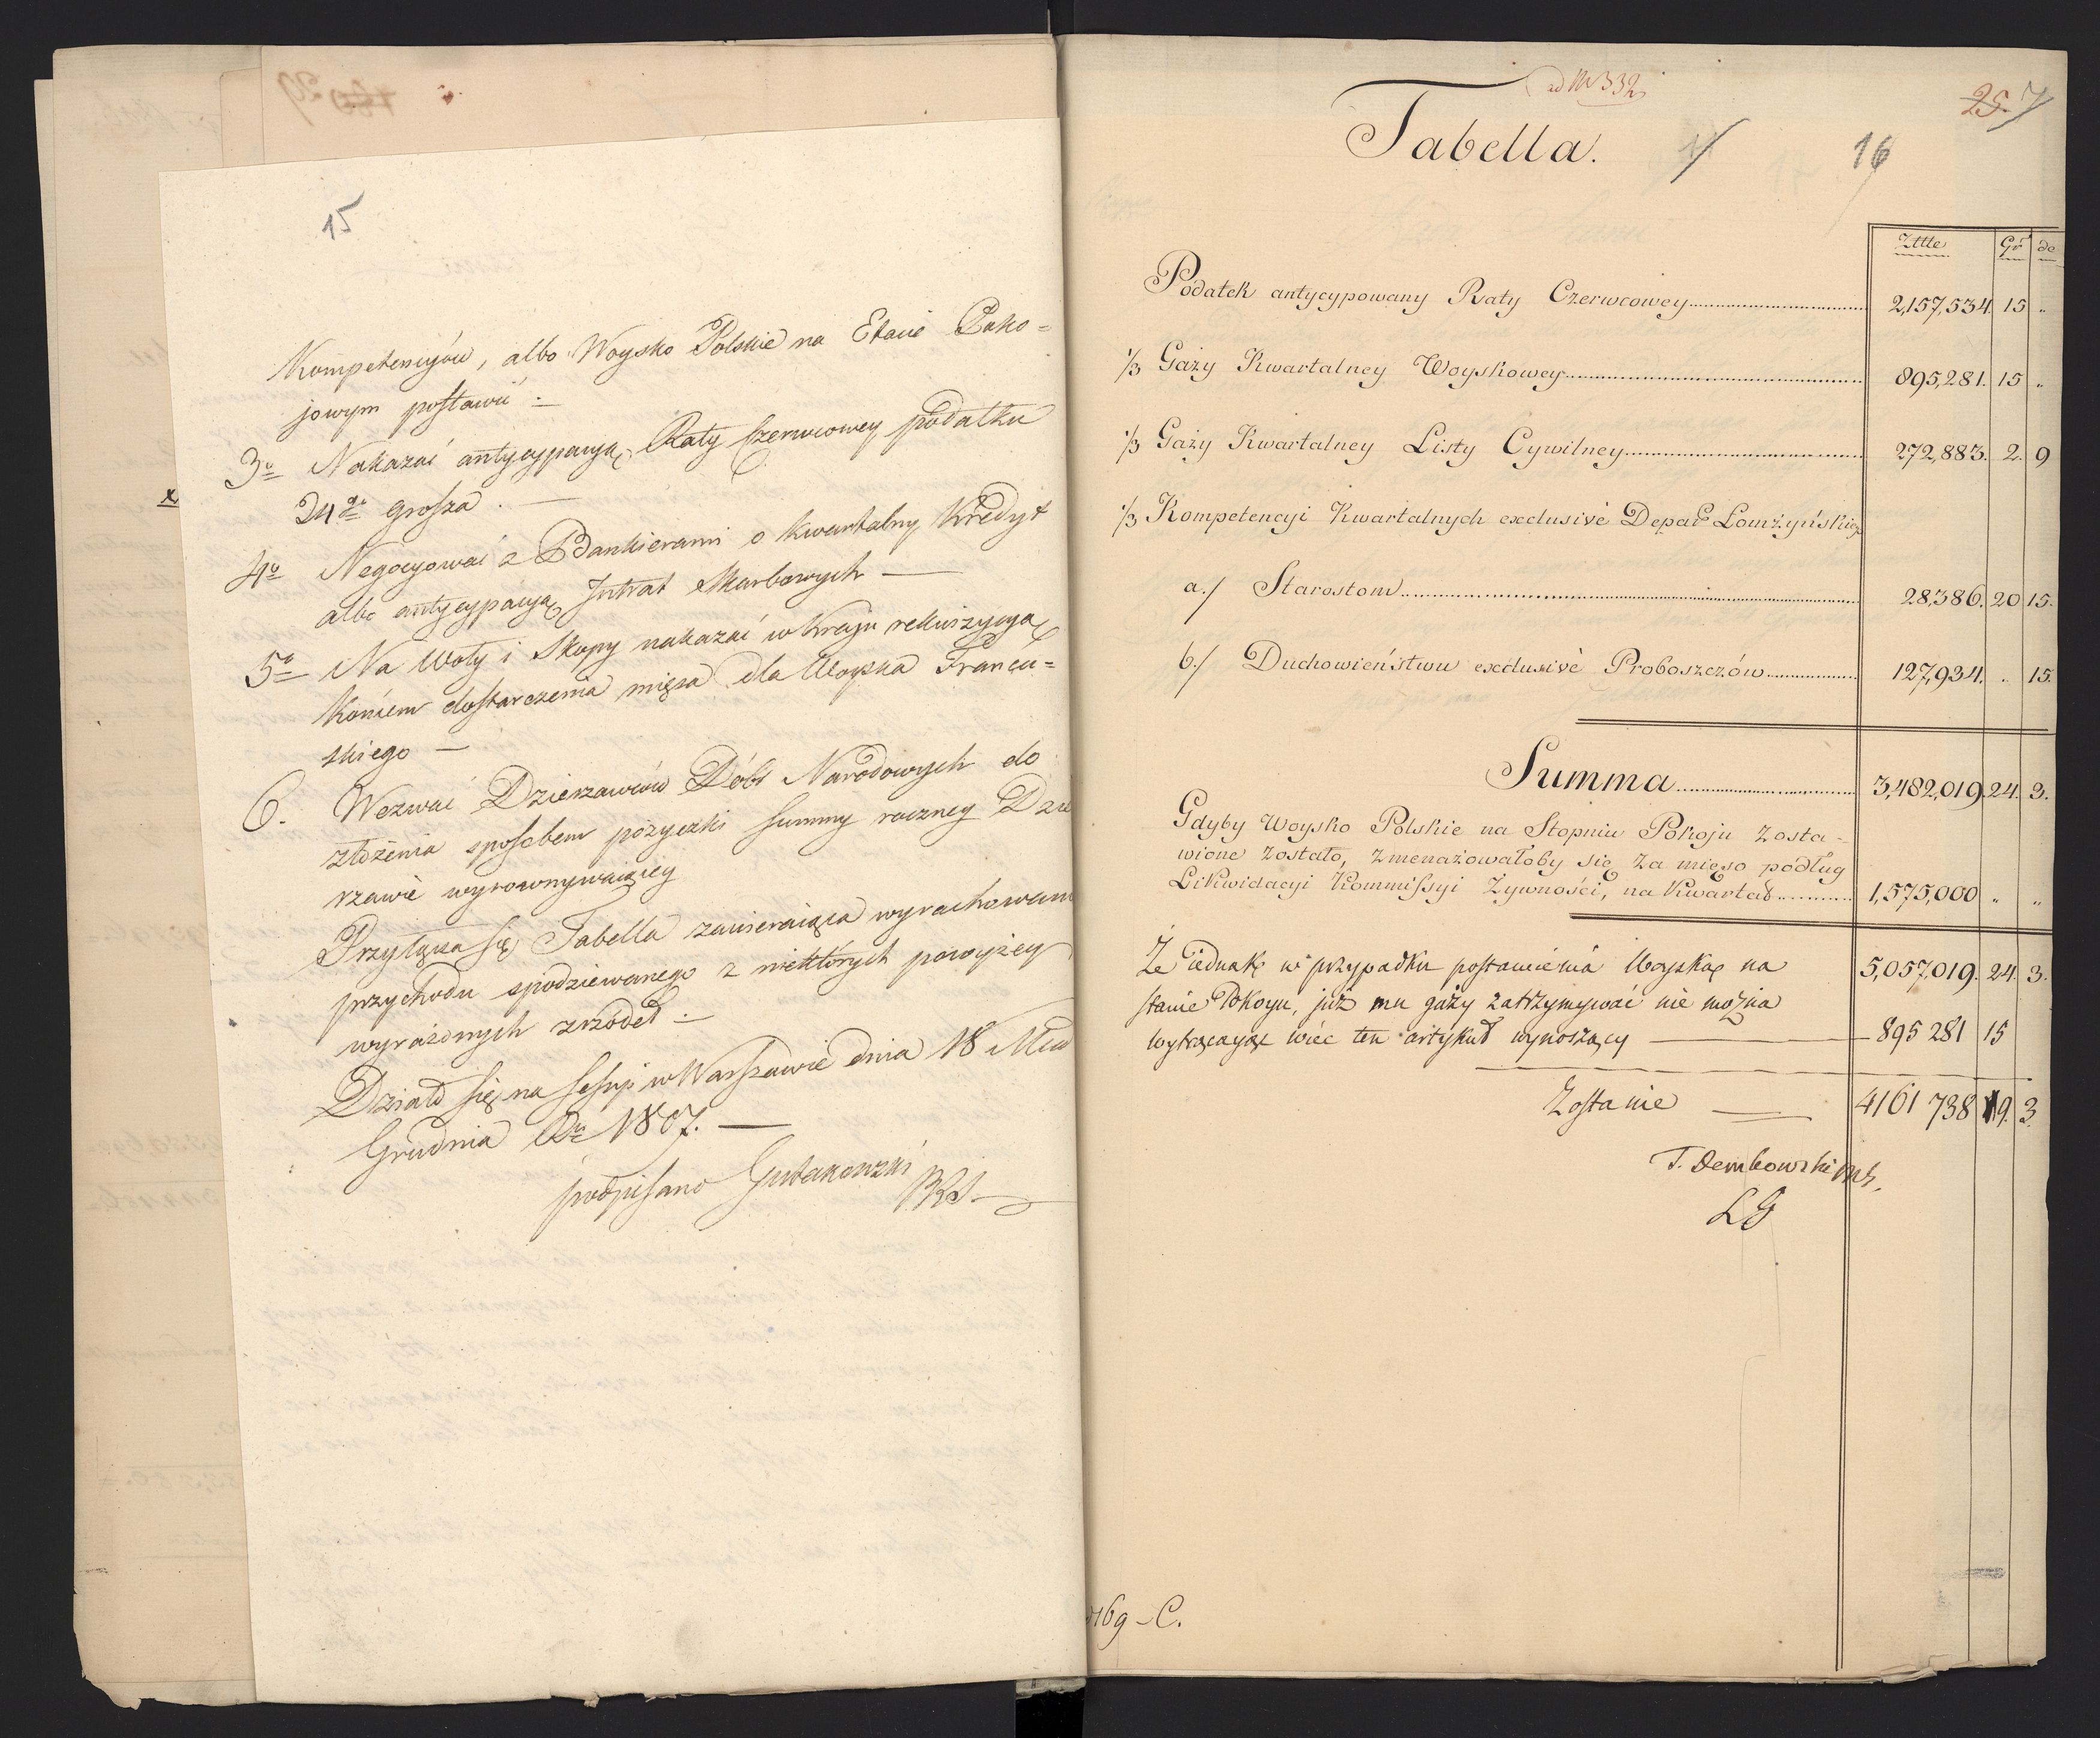 15
Kompetencyów, albo Woysko Polskie na Etacie Poko=
jowym postawić :
3o Nakazać antycypacyą Raty Czerwcowey podatku
24go grosza . —
4o Negocyować z Bankierami o kwartalny Kredyt
albo antycypacyą Intrat Skarbowych —
5o Na Woły i Skopy nakazać w Kraju rekwizycyą
koniem dostarczenia mięsa dla Woyska Francu=
skiego —
6. Wezwać Dzierzawców Dóbr Narodowych do
złożenia sposobem pożyczki summy roczney Dzie
rzawie wyrownywaiącey
Przyłącza się Tabella zawieraiąca wyrachowani
przychodu spodziewanego z niektórych powyżey
wyrażonych zrzódeł :
Działo się na Sessyi w Warszawie dnia 18 Mca
Grudnia Ru 1807. —
podpisano Gutakowski
PRS
ad No 332
25. 7
Tabella.
16
Zttle Gr de
Podatek antycypowany Raty Czerwcowey 2,157,534. 15 „
1/3 Gaży Kwartalney Woyskowey 895,281. 15 „
1/3 Gaży Kwartalney Listy Cywilney 272,883. 2. 9
1/3 Kompetencyi Kwartalnych exclusivè Depar Łomżyńskie
a./ Starostom 28,386. 20 15.
b./ Duchowieństwu exclusivè Proboszczów 127,934. „ 15.
Summa 3,482,019. 24. 3.
Gdyby Woysko Polskie na Stopniu Pokoju zosta-
wione zostało, zmenażowałoby się za mięso podług
Likwidacyi Kommissyi Żywności, na Kwartał 1,575,000 „ „
Że iednak w przypadku postawienia Woyska na 5,057,019. 24. 3.
stanie Pokoyu, już mu gaży zatrzymywać nie można
wytrącaiąc więc ten artykuł wynoszący — 895 281 15
Zostanie — 4161 738 19. 3
T. Dembowski
LG
169 - C.